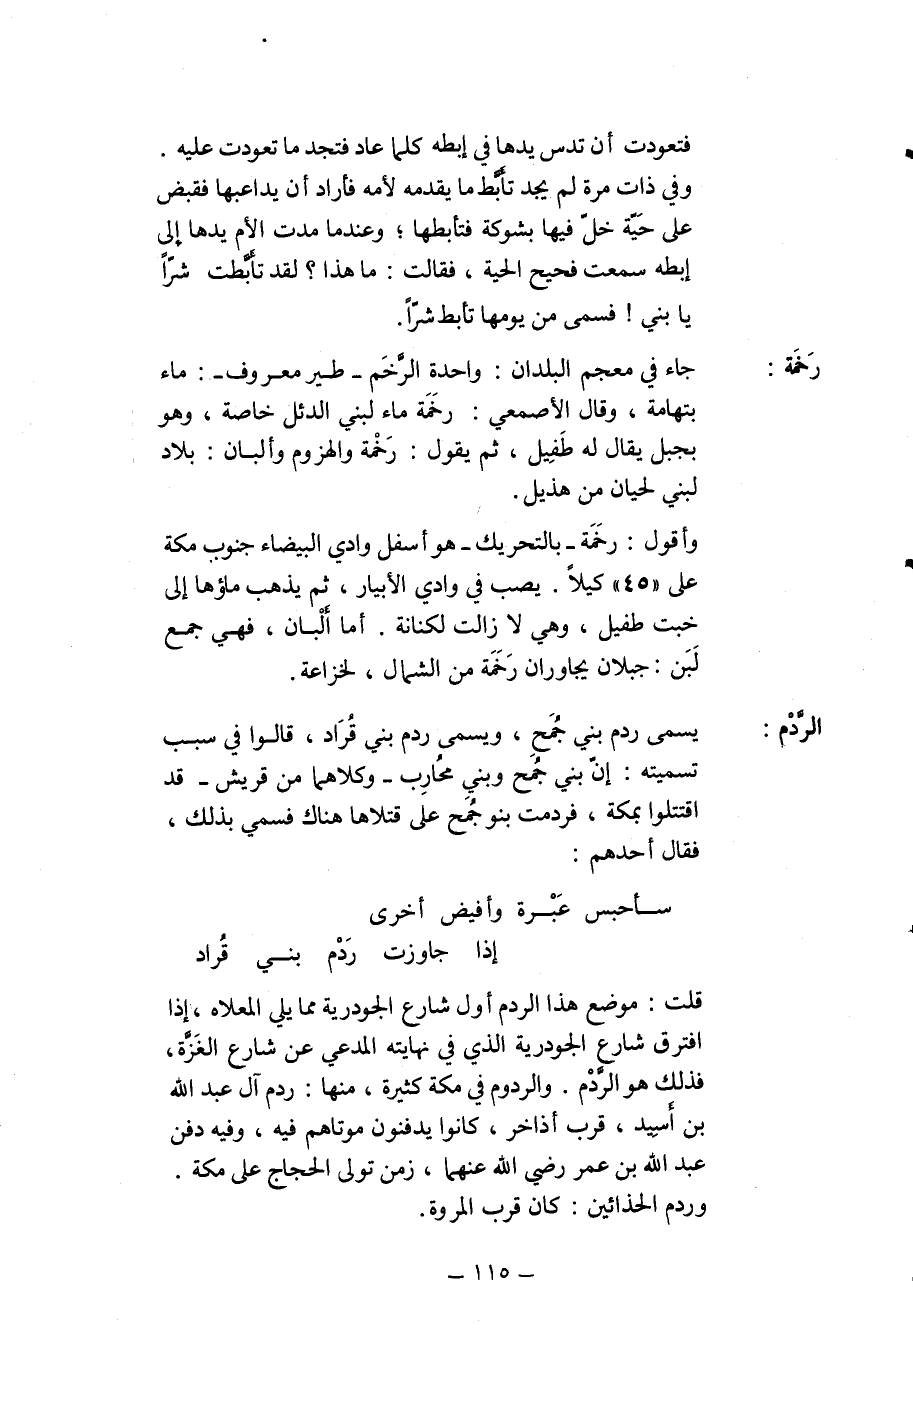 فتعودت أن تدس يدها في إبطه كلما عاد فتجد ما تعودت عليه .
وفي ذات مرة لم يجد تأبَّط ما يقدمه لأمه فأراد أن يداعبها فقبض
على حَيّة خلّ فيها بشوكة فتأبطها ؛ وعندما مدت الأم يدها إلى
إبطه سمعت فحيح الحية ، فقالت : ما هذا ؟ لقد تأبَّطت شرّاً
يا بني ! فسمى من يومها تأبط شرّاً.
رَخَمَة : جاء في معجم البلدان : واحدة الرَّخَم ـ طير معروف ـ : ماء
بتهامة ، وقال الأصمعي : رخَمَة ماء لبني الدئل خاصة ، وهو
بجبل يقال له طَفِيل ، ثم يقول : رَخْمة والهزوم وألبان : بلاد
لبني لحيان من هذيل.
وأقول : رخَمَة ـ بالتحريك ـ هو أسفل وادي البيضاء جنوب مكة
على «٤٥» كيلاً . يصب في وادي الأبيار ، ثم يذهب ماؤها إلى
خبت طفيل ، وهي لا زالت لكنانة . أما ألْبان ، فهي جمع
لَبَن : جبلان يجاوران رَخَمَة من الشمال ، لخزاعة.
الرَّدْم : يسمى ردم بني جُمَح ، ويسمى ردم بني قُرَاد ، قالوا في سبب
تسميته : إنّ بني جُمَح وبني محُارِب ـ وكلاهما من قريش ـ قد
اقتتلوا بمكة ، فردمت بنو جُمَح على قتلاها هناك فسمي بذلك ،
فقال أحدهم :
سأحبس عَبْرة وأفيض أخرى
إذا جاوزت رَدْم بني قُراد
قلت : موضع هذا الردم أول شارع الجودرية مما يلي المعلاه ، إذا
افترق شارع الجودرية الذي في نهايته المدعي عن شارع الغَزَّة،
فذلك هو الرَّدْم . والردوم في مكة كثيرة ، منها : ردم آل عبد الله
بن أَسيد ، قرب أذاخر ، كانوا يدفنون موتاهم فيه ، وفيه دفن
عبد الله بن عمر رضي الله عنهما ، زمن تولى الحجاج على مكة .
وردم الحذائين : كان قرب المروة.
ـ ١١٥ ـ